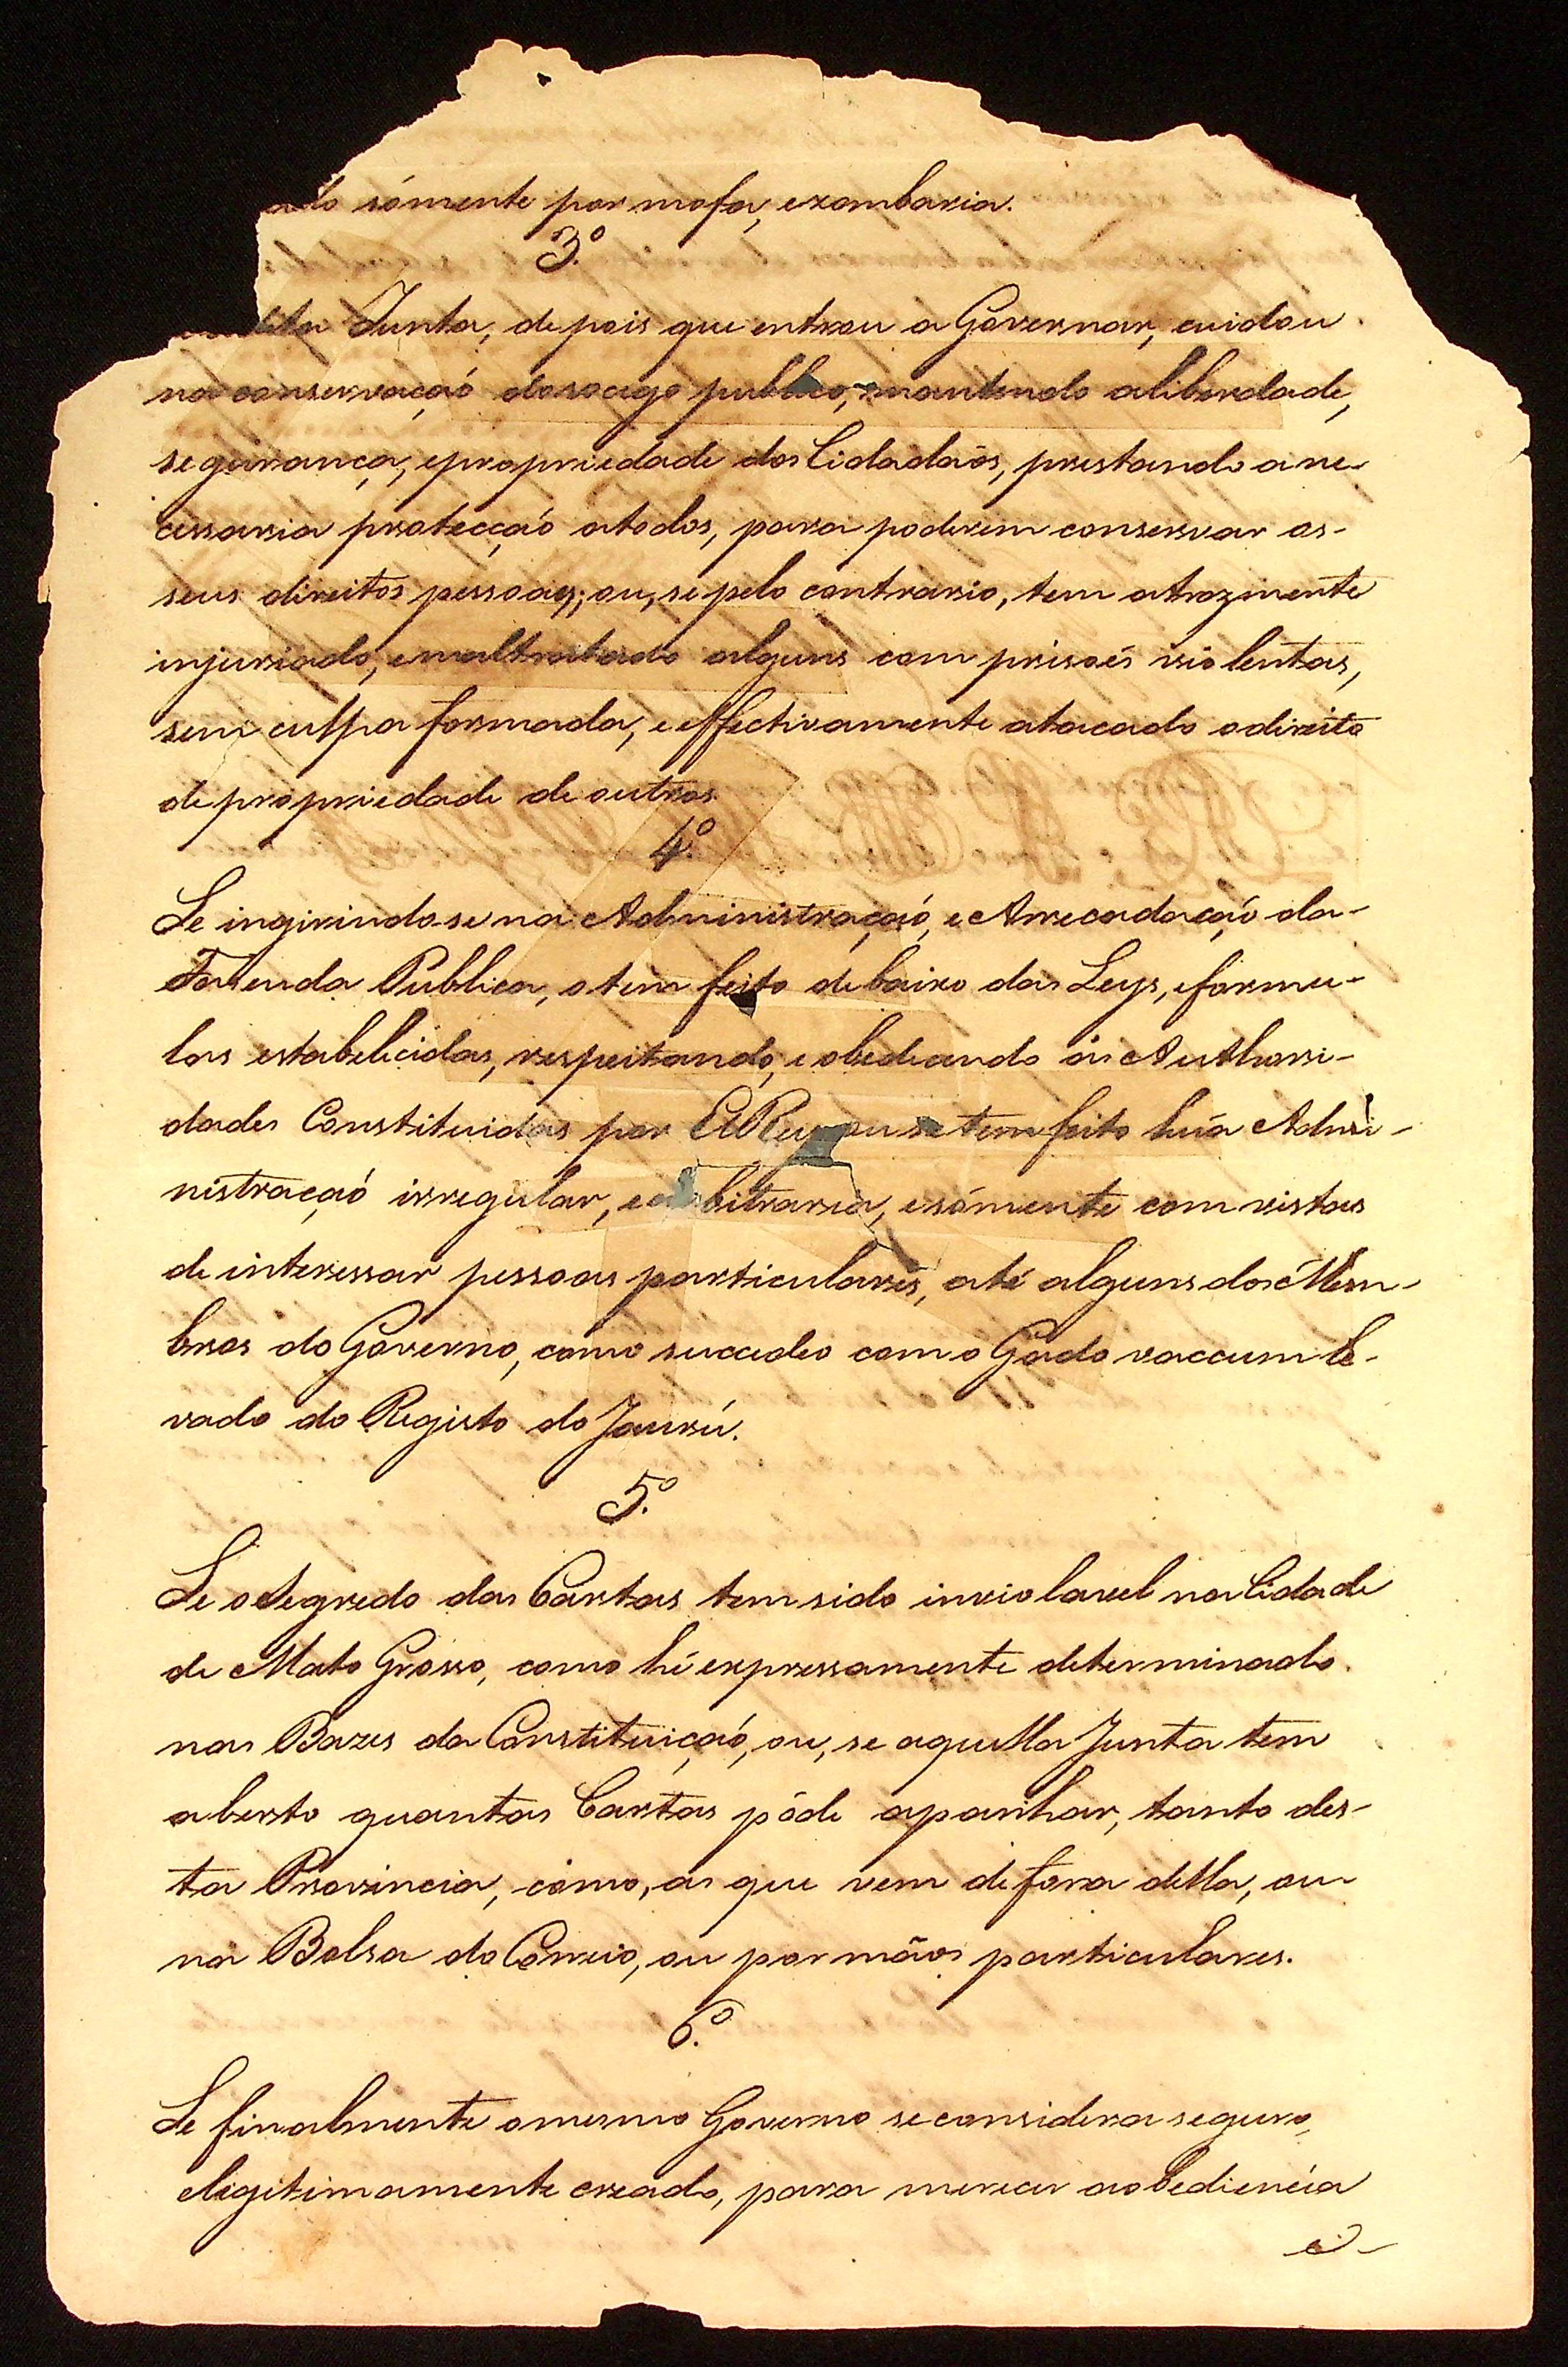 sómente por mofa, e zombaria.
3.º
dita Junta, depois que entrou a Governar, cuidou
na conservaçaó do socego publico, mantendo a liberdade,
segurança, e propriedade dos Cidadaós, prestando a ne-
cessaria protecçaó a todos, para poderem conservar os-
seus direitos pessoaes; ou, se pelo contrario, tem atrozmente
injuriado, e maltratado alguns com prisoés violentas,
sem culpa formada, e effectivamente atacado o direito
de propriedade de outros.
4.º
Se ingirindo-se na Administraçaó, e Arrecadaçaó da-
Fazenda Publica, o tem feito debaixo das Leys, e formu-
las estabelecidas, respeitando, e obedecendo ás Authori-
dades Constituidas por ElRey, ou se tem feito huá Admi-
nistraçaó irregular, e arbitraria, e sómente com vistas
de interessar pessoas particulares, até alguns dos Mem-
bros do Governo, como succedeo com o Gado vaccum le-
vado do Registo do Jaurú.
5.º
Se o Segredo das Cartas tem sido inviolavel na Cidade
de Mato Grosso, como hé expressamente determinado
nas Bazes da Constituiçaó, ou, se aquella Junta tem
aberto quantas Cartas póde apanhar, tanto des-
ta Provincia, como, as que vem de fora della, ou-
na Bolsa do Correio, ou por mãos particulares.
6.º
Se finalmente o mesmo Governo se considera seguro,
e legitimamente creado, para merecer a obediencia
e-